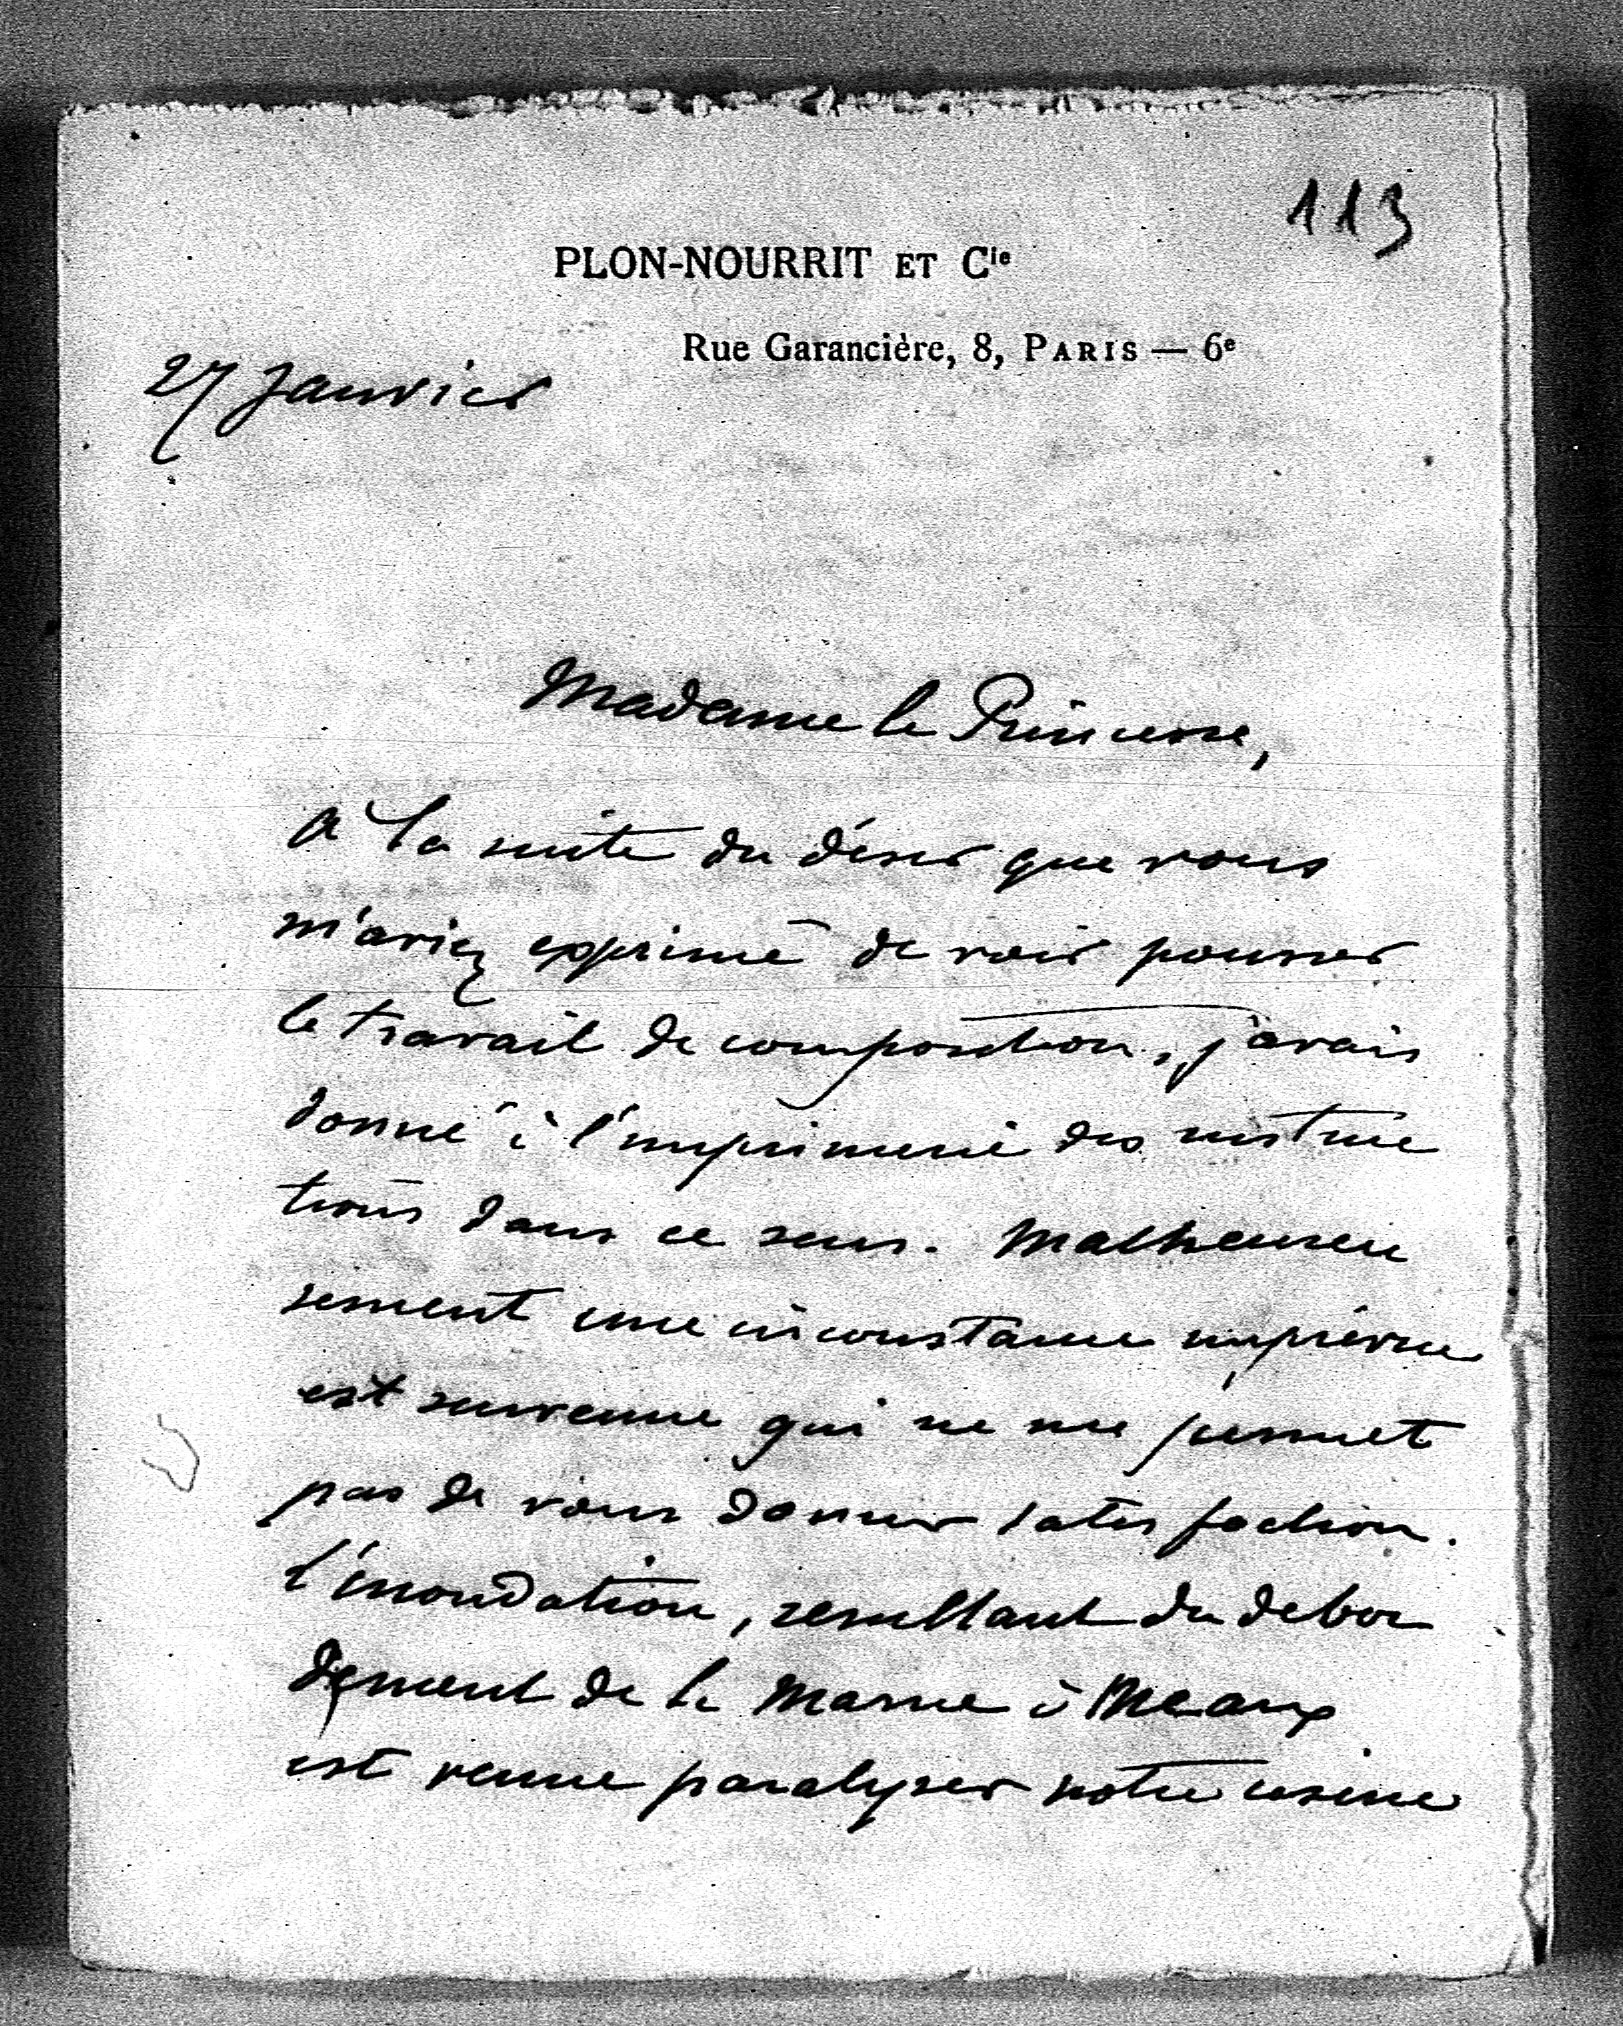 113
PLON-NOURRIT ET Cie
Rue Garancière, 8, PARIS — 6e
27 Janvier
Madame la Princesse,
A la suite du désir que vous
m'aviez exprimé de voir pousser
le travail de composition, j'avais
donné à l'imprimerie des instruc
tions dans ce sens. Malheureu
sement une circonstance imprévue
est survenue qui ne me permet
pas de vous donner satisfaction.
L'inondation, résultant du debor
dement de la Marne à Meaux
est venue paralyser notre usine